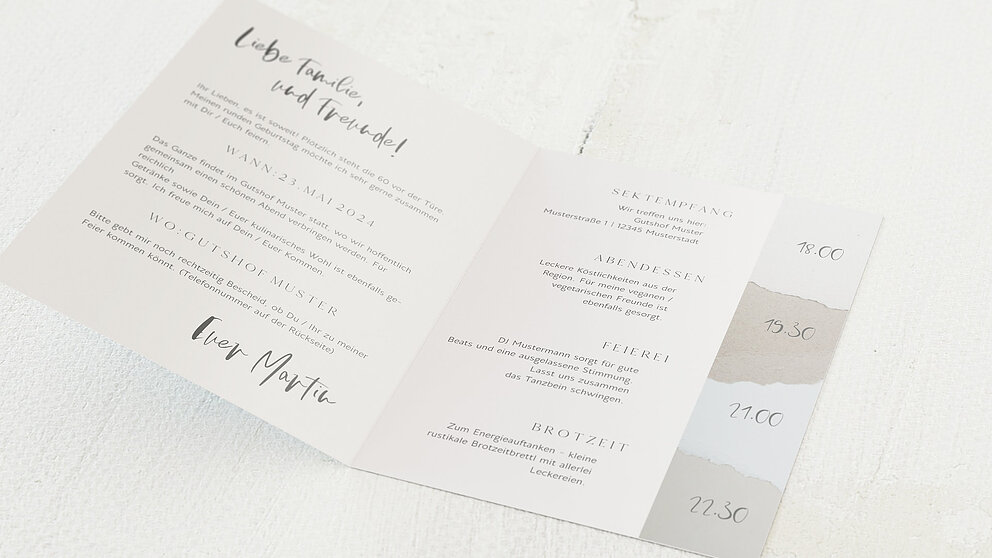 Liebe Familie,
und Freunde!
Ihr Lieben, es ist soweit! Plötzlich steht die 60 vor der Türe.
Meinen runden Geburtstag möchte ich sehr gerne zusammen
mit Dir / Euch feiern.
WANN:23.MAI 2024
Das Ganze findet im Gutshof Muster statt, wo wir hoffentlich
gemeinsam einen schönen Abend verbringen werden. Für
reichlich
Getränke sowie Dein / Euer kulinarisches Wohl ist ebenfalls ge-
sorgt. Ich freue mich auf Dein / Euer Kommen.
WO:GUTSHOF MUSTER
Bitte gebt mir noch rechtzeitig Bescheid, ob Du / Ihr zu meiner
Feier kommen könnt. (Telefonnummer auf der Rückseite)
Euer Martin
SEKTEMPFANG
Wir treffen uns hier:
Gutshof Muster
Musterstraße 1 | 12345 Musterstadt
18.00
ABENDESSEN
Leckere Köstlichkeiten aus der
Region. Für meine veganen /
vegetarischen Freunde ist
ebenfalls gesorgt.
19.30
FEIEREI
DJ Mustermann sorgt für gute
Beats und eine ausgelassene Stimmung.
Lasst uns zusammen
das Tanzbein schwingen.
21.00
BROTZEIT
Zum Energieauftanken - kleine
rustikale Brotzeitbrettl mit allerlei
Leckereien.
22.30